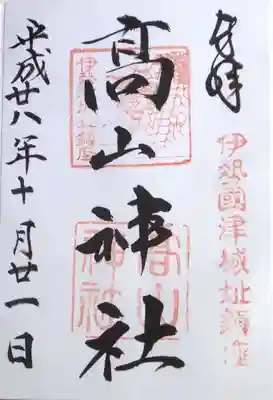 奉拝
伊勢國津城址鎮座
髙山神社
高山神社
平成廿八年十月廿一日